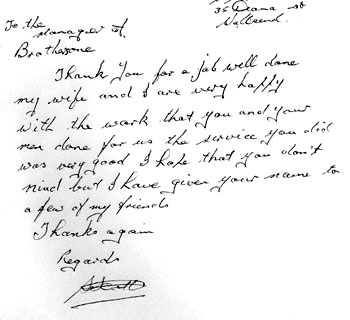 35 Deana st
Wallsend.
To the
Manager of
Brotherone
Thank you for a job well done
my wife and I are very happy
with the work that you and your
men done for us the service you did
was very good I hope that you don't
mind but I have given your name to
a few of my friends
Thanks again
Regards